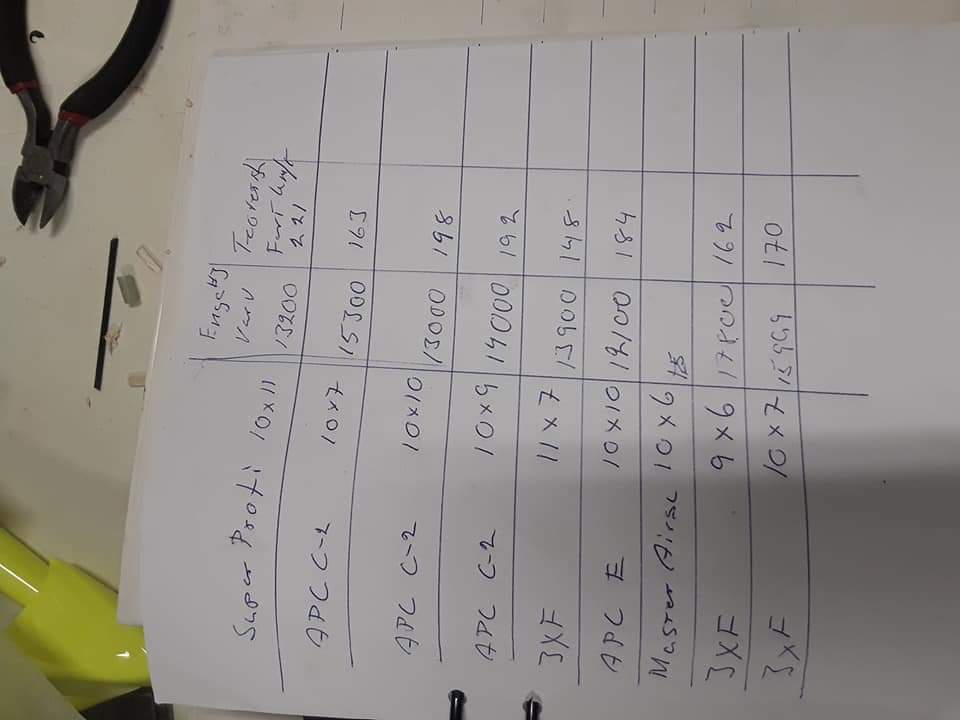 Varv Teoretisk
Fart km/h
Super Profi 10x11 13200 221
APC C-2 10x7 15300 163
APC C-2 10x10 13000 198
APC C-2 10x9 14000 192
3XF 11x7 13900 148
APC E 10x10 12100 184
Master Airsc 10x6
3XF 9x6 17800 162
3XF 10x7 15999 170